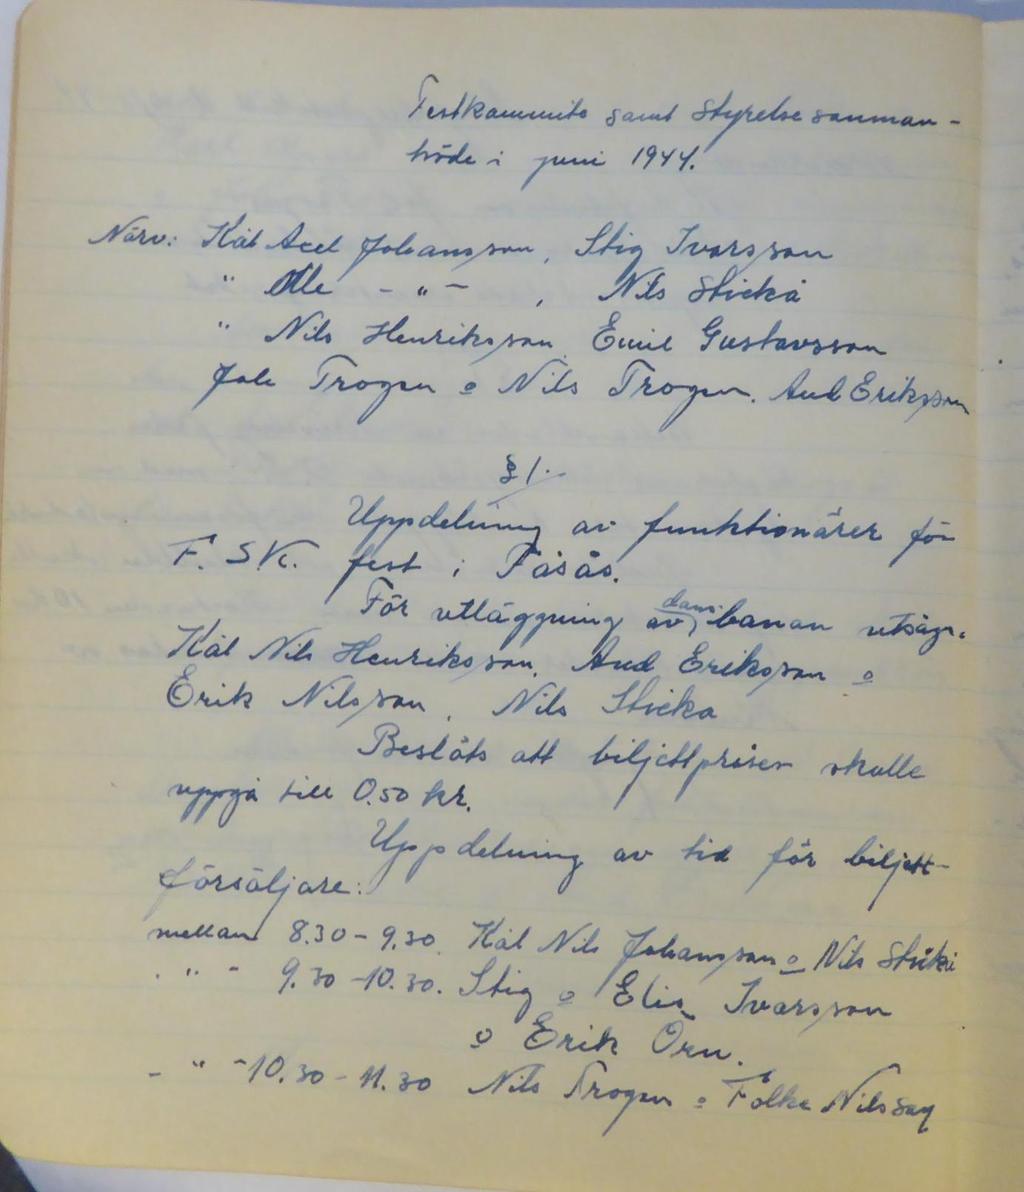 Festkommite samt Styrelsesamman-
träde i juni 1944.
Närv: Kål Axel Johansson, Stig Ivarsson
" Olle - " - , Nils Sticka
" Nils Henriksson, Emil Gustavsson
Joh Trogen o Nils Trogen. And Eriksson
§ 1.
Uppdelning av funktionärer för
F. S.K. fest i Fåsås.
För utläggning av dans-banan utsågs.
Kål Nils Henriksson, And Eriksson o
Erik Nilsson, Nils Sticka
Beslöts att biljettpriser skulle
uppgå till 0.50 kr.
Uppdelning av tid för biljett-
försäljare:
mellan 8.30 - 9.30. Kål Nils Johansson o Nils Sticka
- " - 9.30 - 10.30. Stig o Elis Ivarsson
o Erik Örn.
- " - 10.30 - 11.30 Nils Trogen o Folke Nilsson